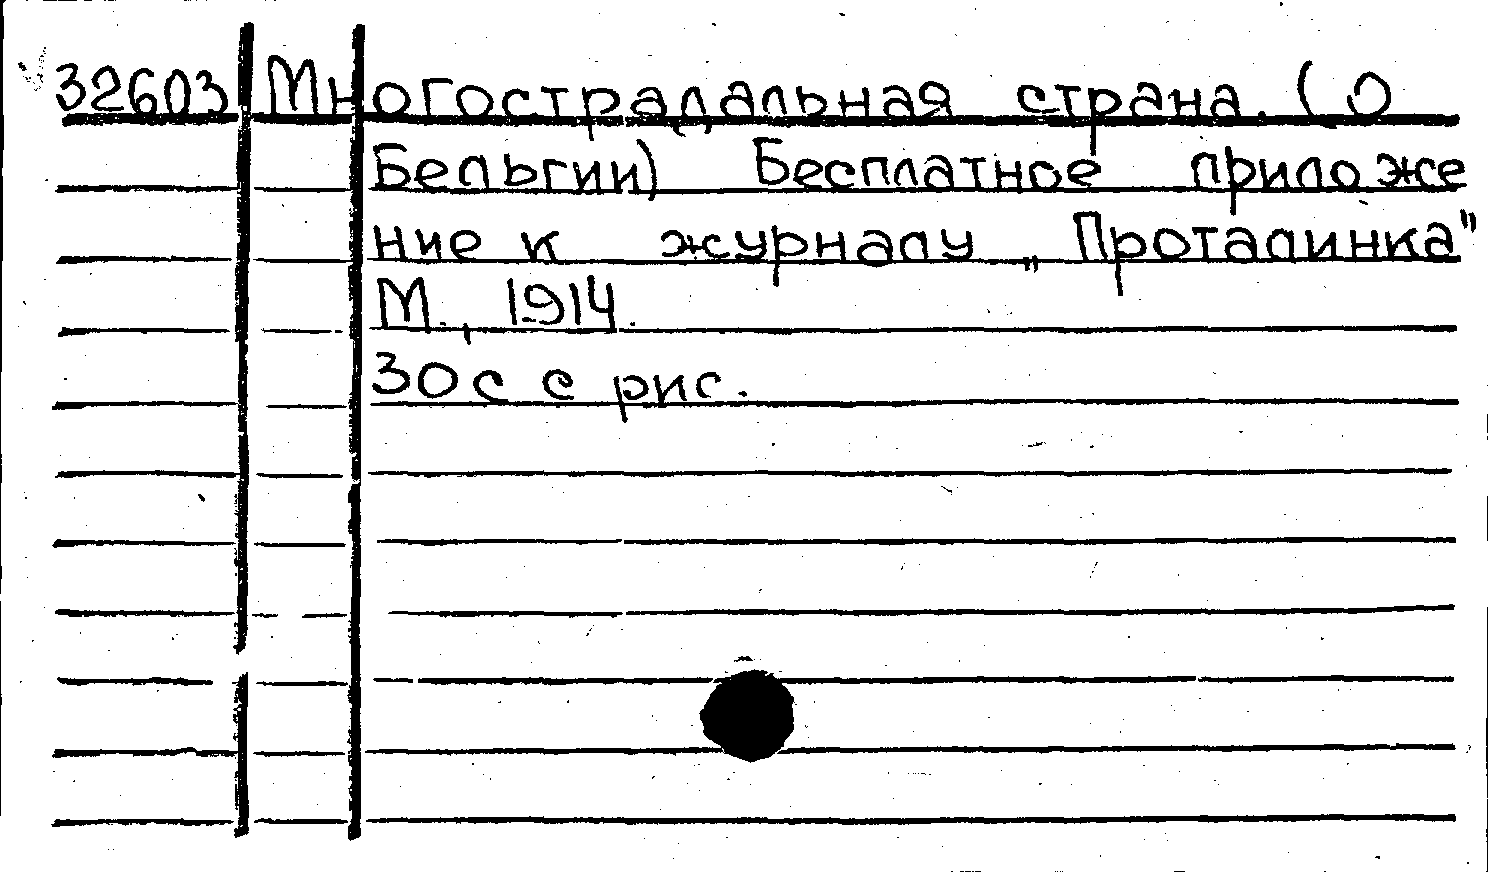 32603 Многострадальная страна. (О
Бельгии) Бесплатное приложе
ние к журналу „Проталинка"
М., 1914.
30 с с рис.